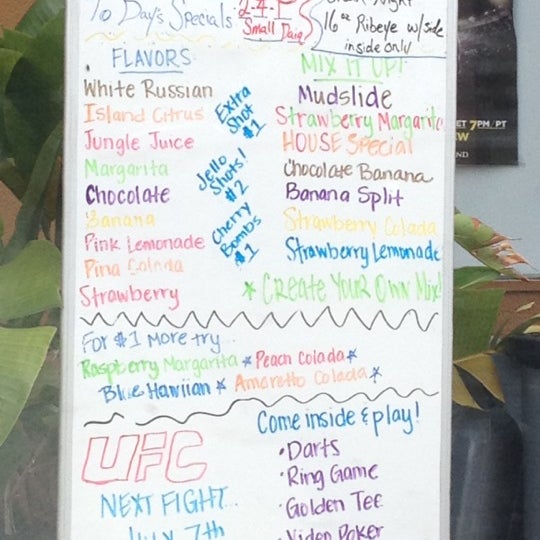 To Day's Specials
2-4-1
Small Daiq
Night
16 oz Ribeye w/side
inside only
FLAVORS
White Russian
Island Citrus
Jungle Juice
Margarita
Chocolate
Banana
Pink Lemonade
Pina Colada
Strawberry
Extra
Shot
$1
Jello
Shots!
$2
Cherry
Bombs
$1
MIX IT UP!
Mudslide
Strawberry Margarita
HOUSE Special
Chocolate Banana
Banana Split
Strawberry Colada
Strawberry Lemonade
* CREATE YOUR OWN Mix!
For $1 more try...
Raspberry Margarita * Peach Colada *
Blue Hawiian * Amaretto Colada *
UFC
NEXT FIGHT...
July 7th
Come inside & play!
• Darts
• Ring Game
• Golden Tee
• Video Poker
ET 7PM/PT